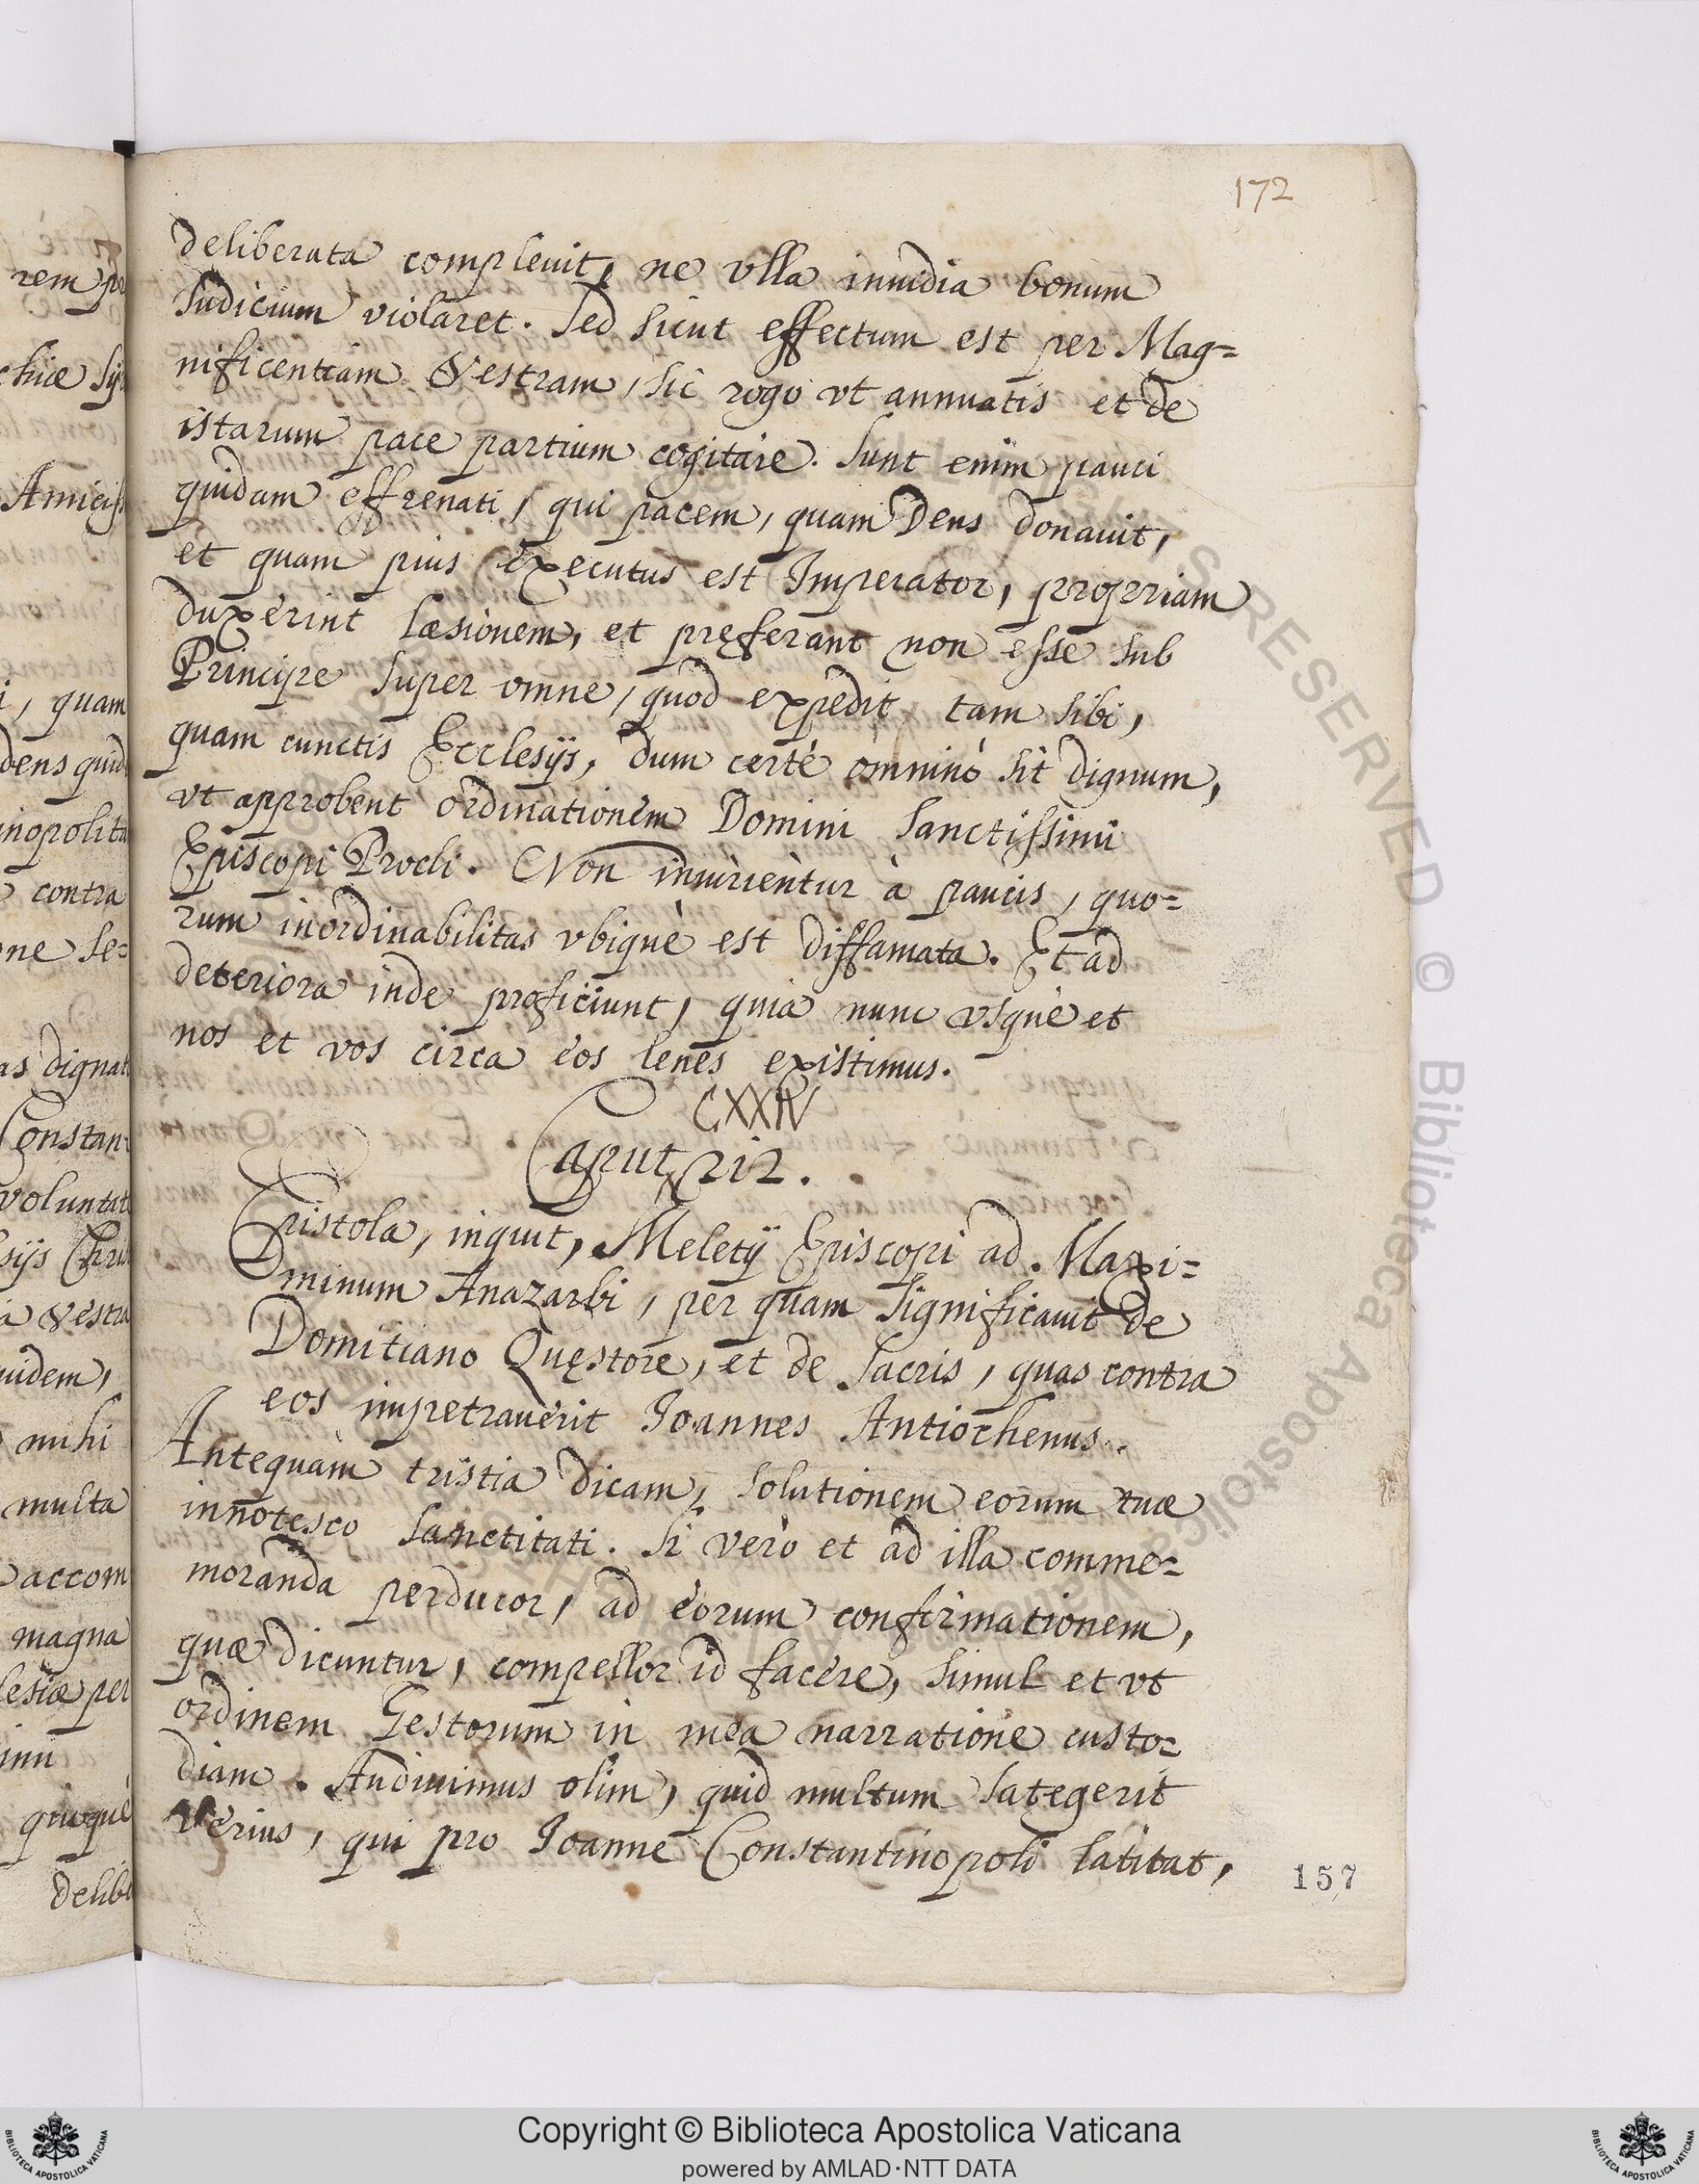 172
deliberata compleuit, ne vlla inuidia bonum
Iudicium violaret. Sed sicut effectum est per Mag=
nificentiam Vestram, sic rogo vt annuatis et de
istarum pace partium cogitare. Sunt enim pauci
quidam effrenati, qui pacem, quam Deus donauit,
et quam pius executus est Imperator, propriam
duxerint læsionem, et pręferant non esse sub
Principe super omne, quod expedit tam sibi,
quam cunctis Ecclesijs, dum certè omninò sit dignum,
vt approbent ordinationem Domini Sanctissimi
Episcopi Procli. Non iniurientur à paucis, quo=
rum inordinabilitas vbiquè est diffamata. Et ad
deteriora inde proficiunt, quia nunc vsquè et
nos et vos circa eos lenes existimus.
CXXIV
Caput 212.
Epistola, inquit, Meletij Episcopi ad Maxi=
minum Anazarbi, per quam significauit de
Domitiano Quęstore, et de Sacris, quas contra
eos impetrauerit Ioannes Antiochenus.
Antequàm tristia dicam, solutionem eorum tuæ
innotesco Sanctitati. Si verò et ad illa comme=
moranda perducor, ad eorum confirmationem,
quæ dicuntur, compellor id facere, simul et vt
ordinem Gestorum in mea narratione custo=
diam. Audiuimus olim, quid multum sategerit
Verius, qui pro Ioanne Constantinopoli latitat,
157
rem
Amiciss
i, quam
dens quid
inopolita
contra
ne se=
as dignat
Constan=
voluntat
sijs Chris
a Vestra
uidem,
mihi
multa
accom
magna
lesiæ per
quoquè
delibe
Copyright © Biblioteca Apostolica Vaticana
powered by AMLAD·NTT DATA